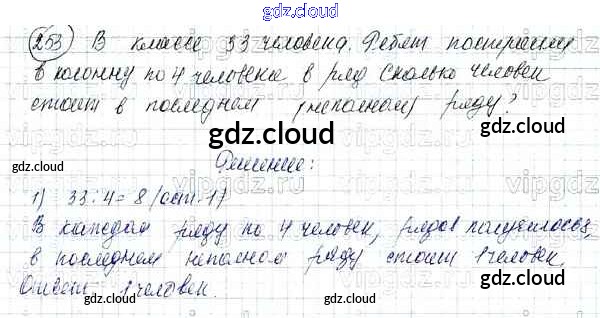 gdz.cloud
253) В классе 33 человека. Ребят построили
в колонну по 4 человека в ряд Сколько человек
стоит в последнем (неполном) ряду?
gdz.cloud gdz.cloud
Решение:
1) 33:4=8 (ост. 1)
В каждом ряду по 4 человек, рядов получилось 8,
в последнем неполном ряду стоит 1 человек
Ответ 1 человек.
gdz.cloud gdz.cloud